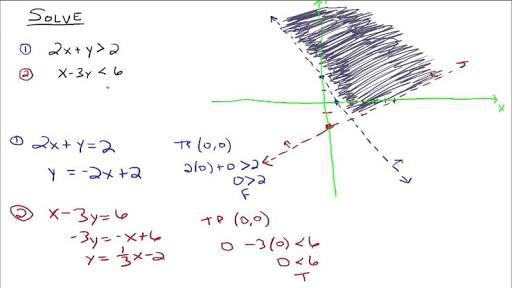 SOLVE
① 2x+y>2
② x-3y<6
x
① 2x+y=2
y=-2x+2
TP (0,0)
2(0)+0>2
0>2
F
② x-3y=6
-3y=-x+6
y=1/3x-2
TP (0,0)
0 -3(0)<6
0<6
T